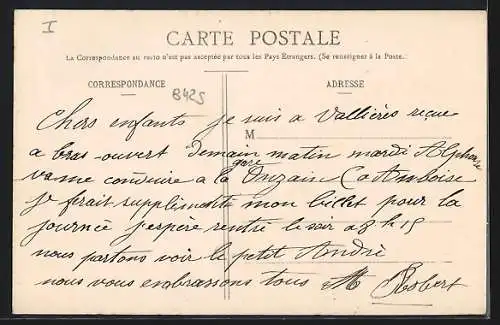 I
CARTE POSTALE
La Correspondance au recto n'est pas acceptée par tous les Pays Etrangers. (Se renseigner à la Poste.)
CORRESPONDANCE
ADRESSE
B425
M
Chers enfants je suis a Vallières reçue
a bras-ouvert demain matin mardi Alphonse
va me conduire a la gare Onzain Amboise
je ferait supplémente mon billet pour la
journée j'espère rentré le soir a 8 h 15
nous partons voir le petit André
nous vous embrassons tous M Robert